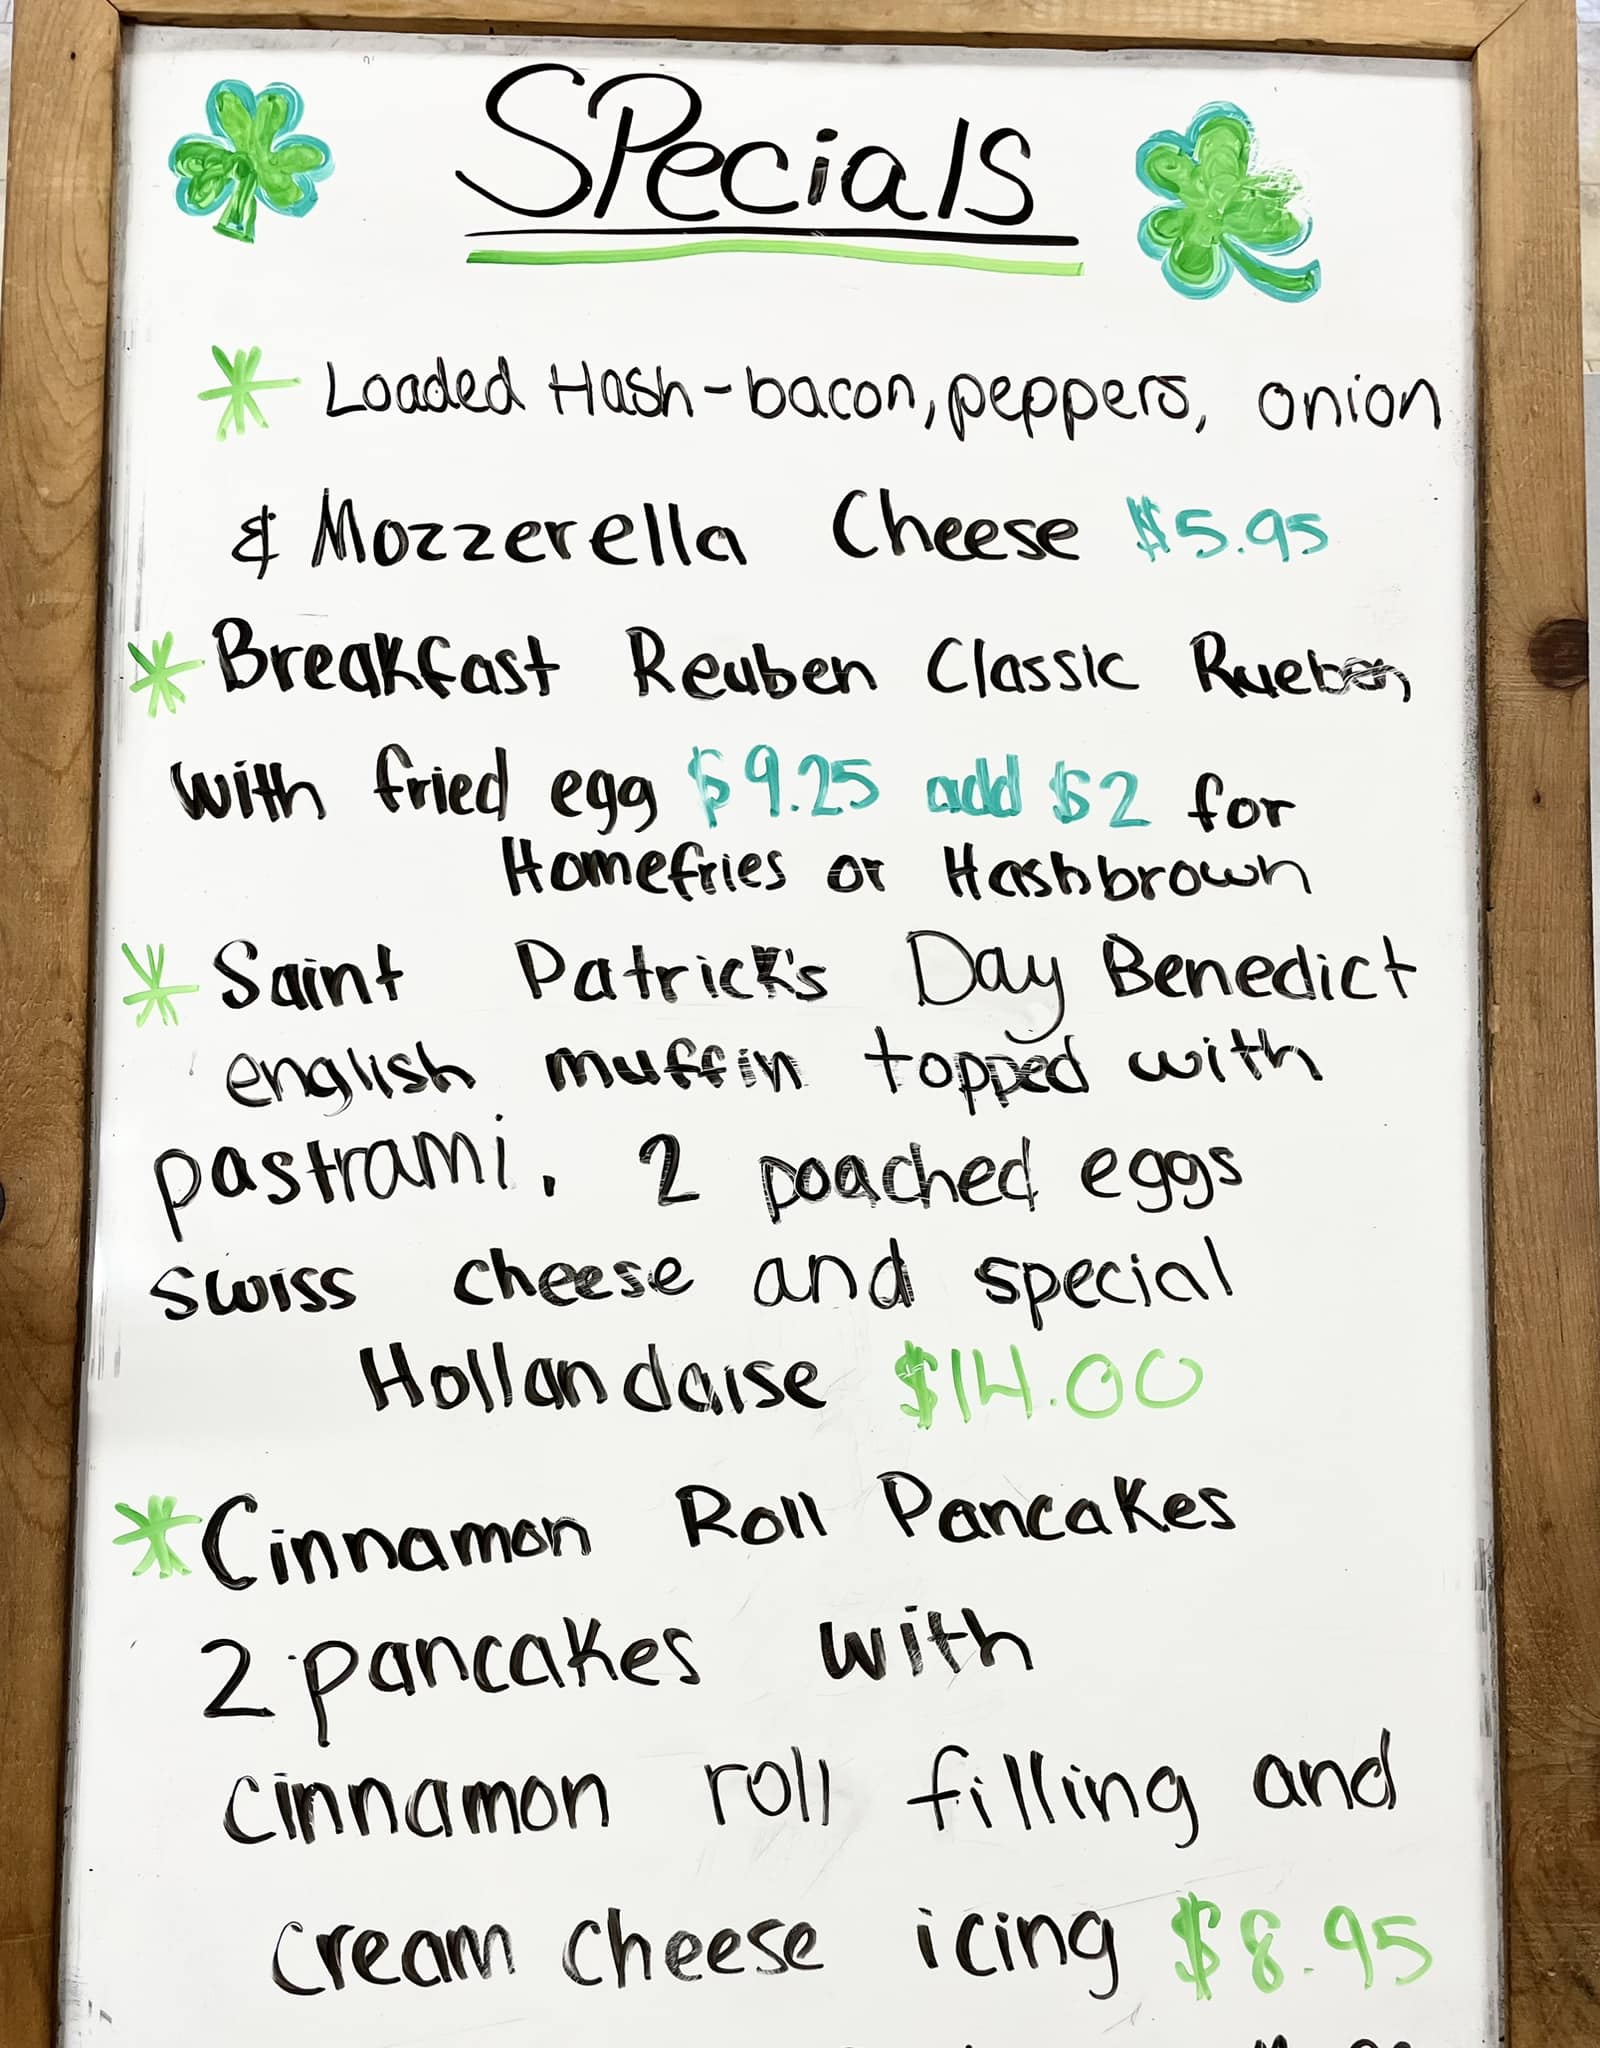 SPecials
* Loaded Hash-bacon, peppers, onion
& Mozzerella Cheese $5.95
* Breakfast Reuben Classic Rueben
with fried egg $9.25 add $2 for
Homefries or Hashbrown
* Saint Patrick's Day Benedict
english muffin topped with
pastrami, 2 poached eggs
swiss cheese and special
Hollandaise $14.00
* Cinnamon Roll Pancakes
2 pancakes with
cinnamon roll filling and
cream cheese icing $8.95